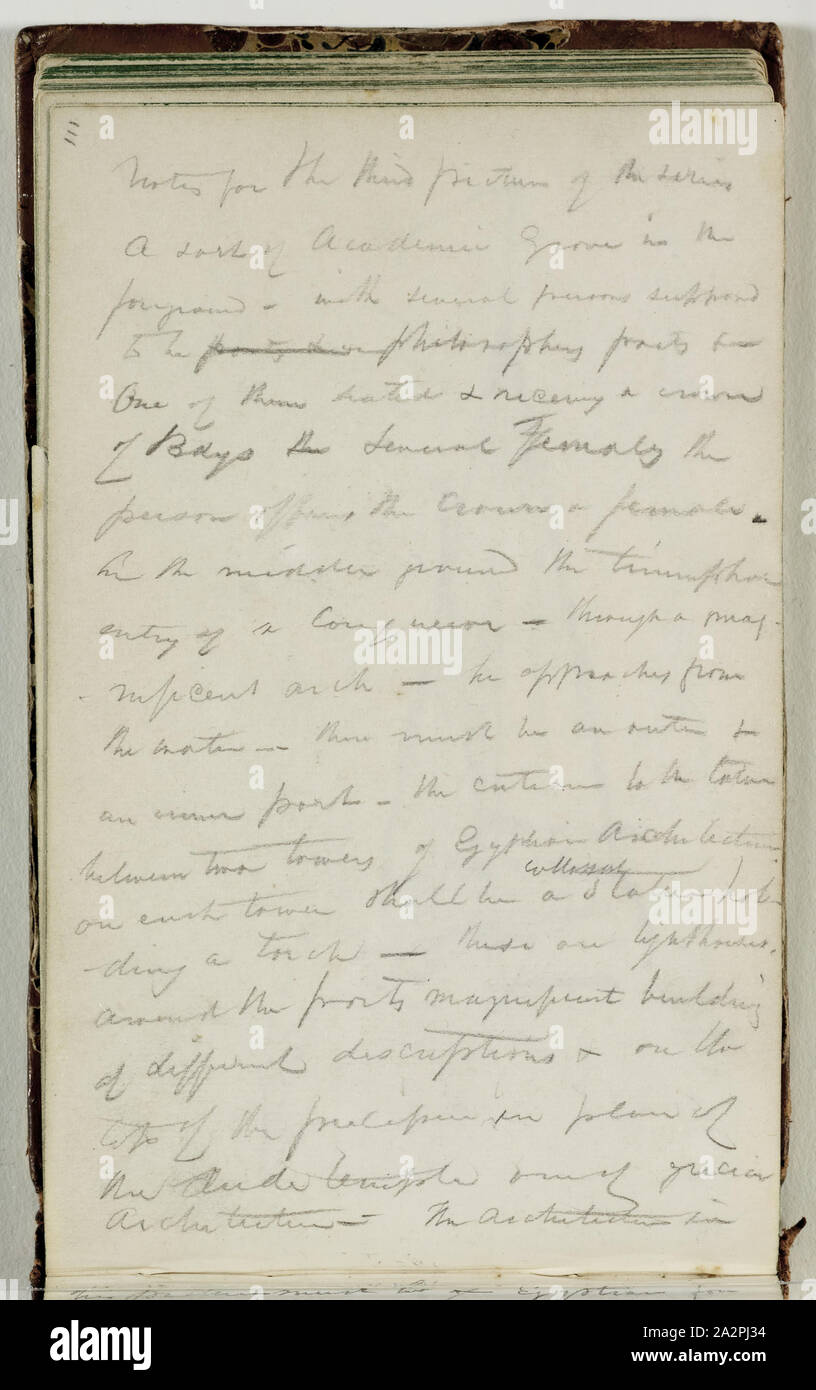 111
Notes for the third picture of the series
A sort of Academic Grove in the
foreground - with several persons suppond
to be philosophers poets &c
One of them seated & receivng a crown
of Bays the several Females the
person offering the crown a female.
In the middle ground the triumphal
entry of a Conqueror - through a mag-
-nificent arch - he approaches from
the water - there must be an outer &
an inner port - the entrance to the latter
between two towers of Egyptian Architecture
collossal
on each tower shall be a Statue hol-
-ding a torch - these are lighthouses.
around the ports magnificent building
of different descriptions & on the
top of the precipice in place of
the rude temple one of grecian
Architecture - The architecture in
must be Egyptian
alamy
Image ID: 2A2PJ34
www.alamy.com